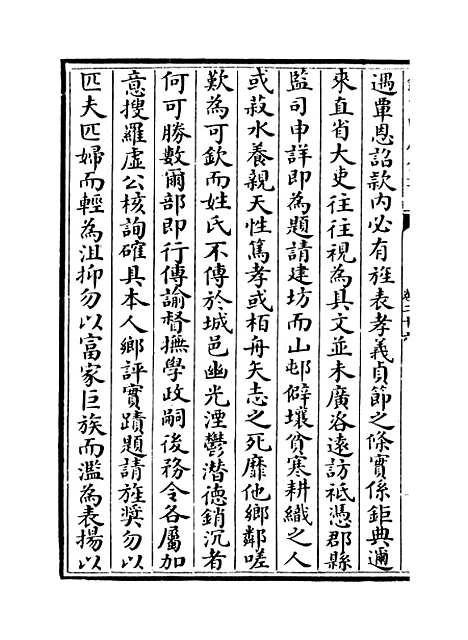 遇覃恩詔款內必有旌表孝義貞節之條實係鉅典邇
來直省大吏往往視為具文並未廣咨遠訪祗憑郡縣
監司申詳即為題請建坊而山邨僻壤貧寒耕織之人
或菽水養親天性篤孝或栢舟矢志之死靡他鄉鄰嗟
歎為可欽而姓氏不傳於城邑幽光湮鬱潛德銷沉者
何可勝數爾部即行傳諭督撫學政嗣後務令各屬加
意搜羅虛公核詢確具本人鄉評實蹟題請旌奬勿以
匹夫匹婦而輕為沮抑勿以富家巨族而濫為表揚以